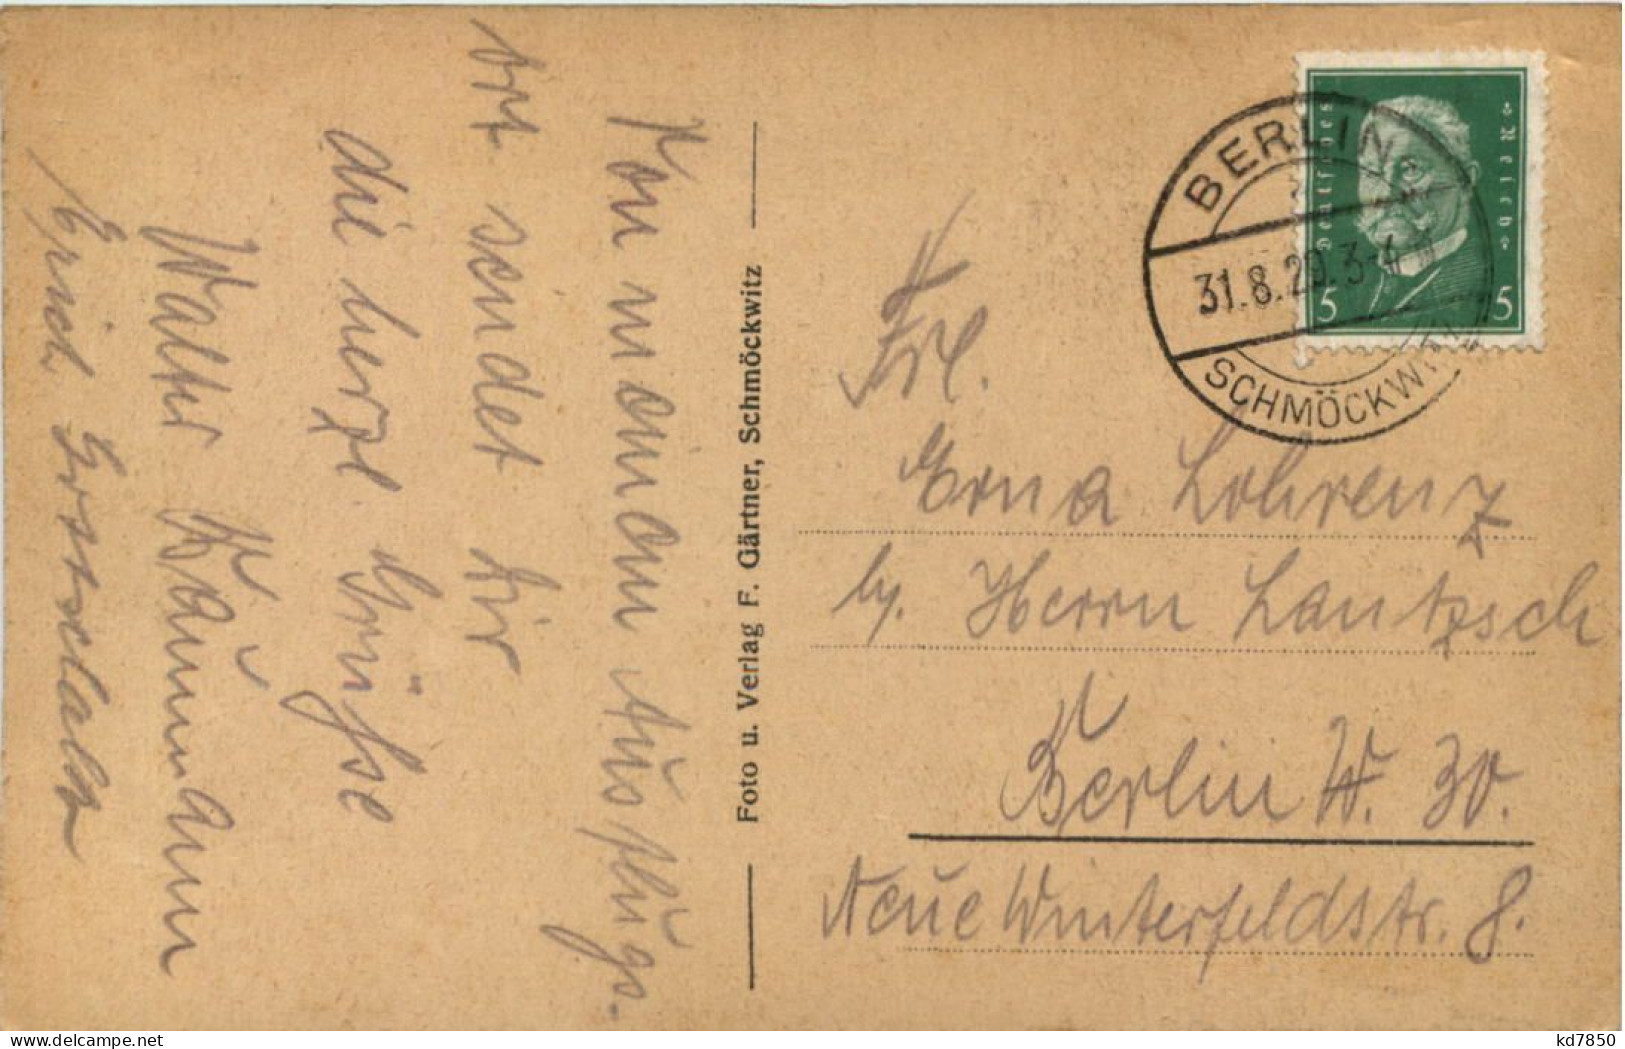 Von meinem Ausflugs-
ort sendet Dir
die herzl. Grüsse
Walter
Erich
Foto u. Verlag F. Gärtner, Schmöckwitz
BERLIN
31.8.29. 3-4
SCHMÖCKWITZ
Deutsches Reich
5 5
Frl.
Erna Lohrenz
b/. Herrn Lautzsch
Berlin W. 30.
Neue Winterfeldstr. 8.
www.delcampe.net
kd7850